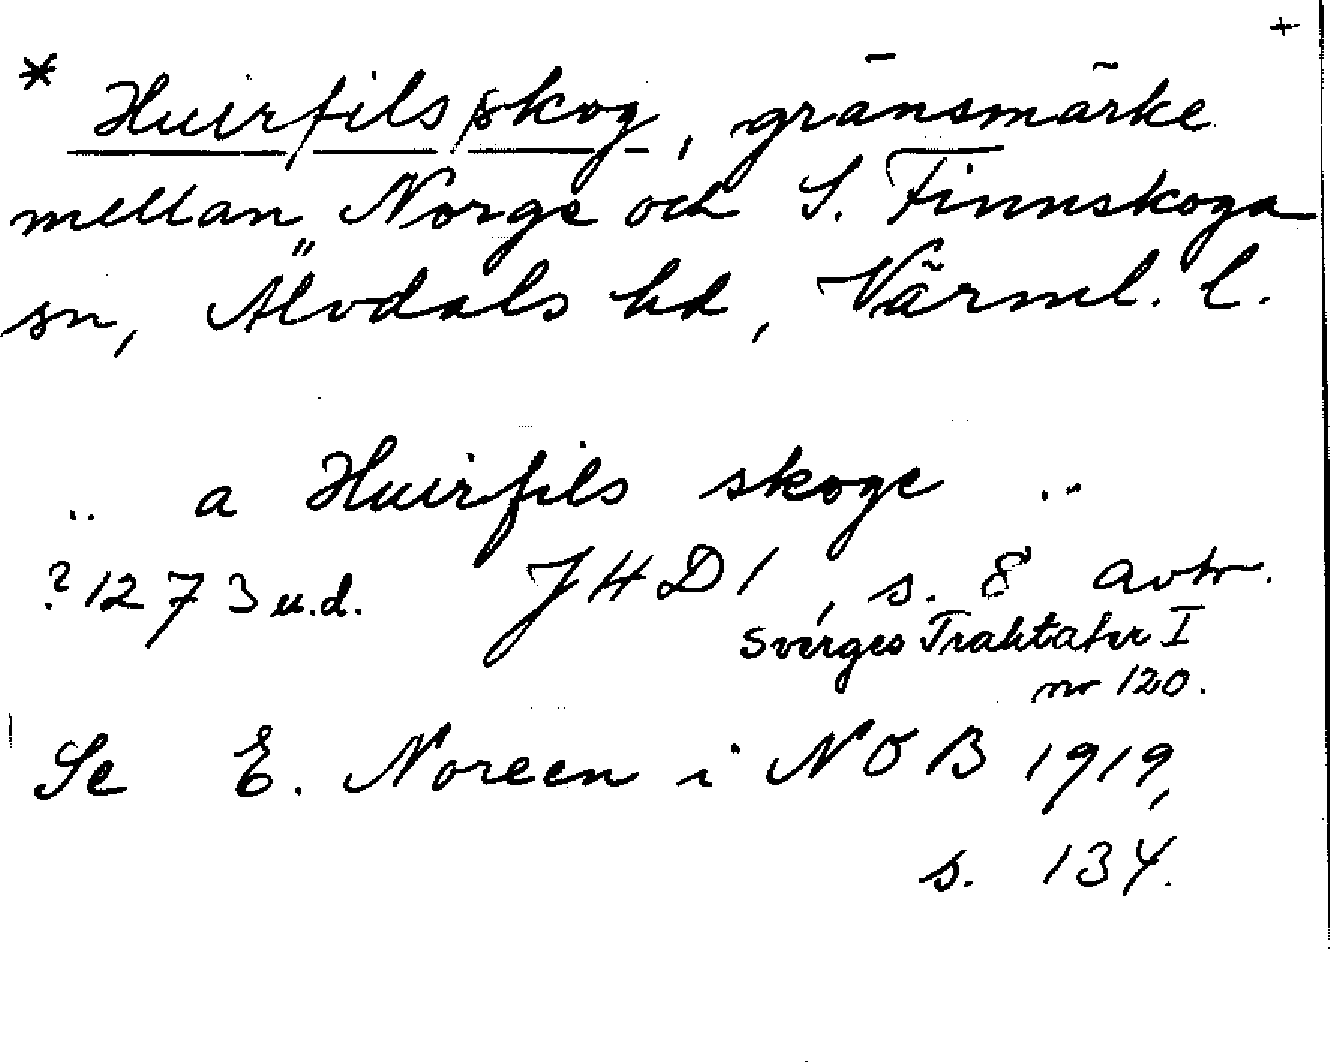 +
* Huirfils/skog, gränsmärke
mellan Norge och S. Finnskoga
sn, Älvdals hd, Värml. l.
.. a Huirfils skoge ..
?1273 u.d. JHD 1, s. 8 avtr.
Sverges Traktater I
nr 120.
Se E. Noreen i NOB 1919,
s. 134.